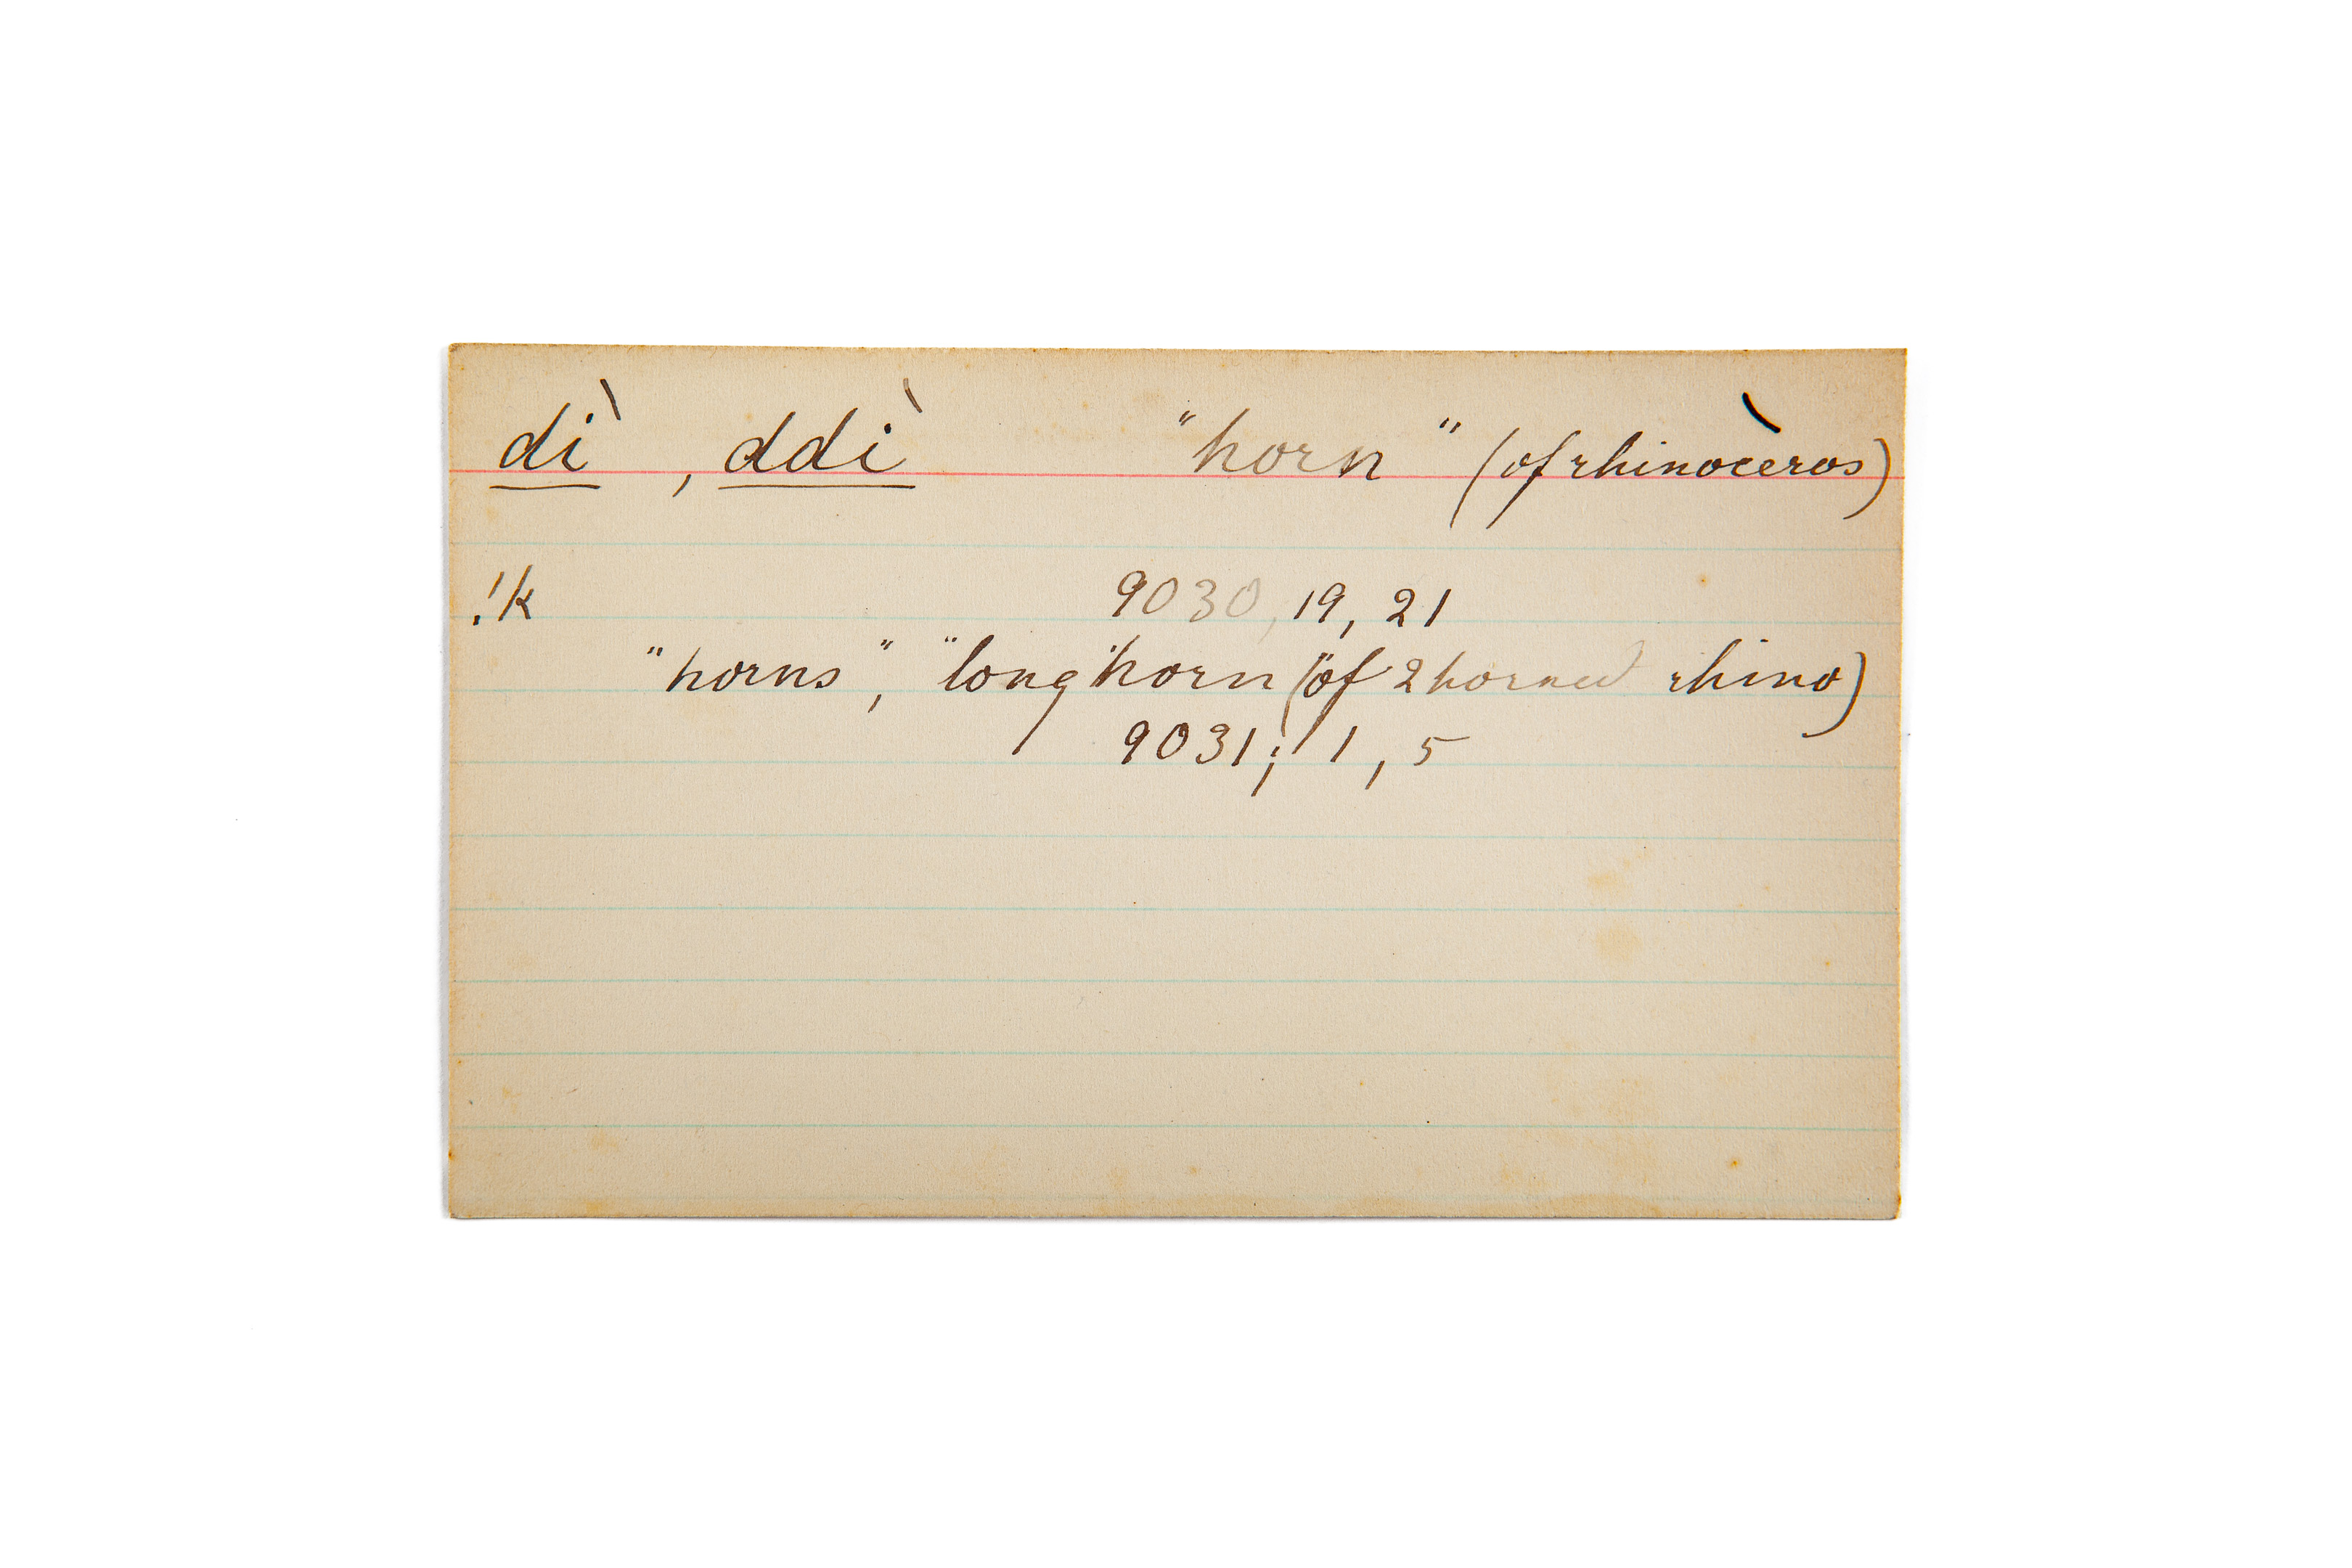 dì, ddì "horn" (of rhinocèros)
!k 9030, 19, 21
"horns", "long horn" (of 2 horned rhino)
9031; 1, 5